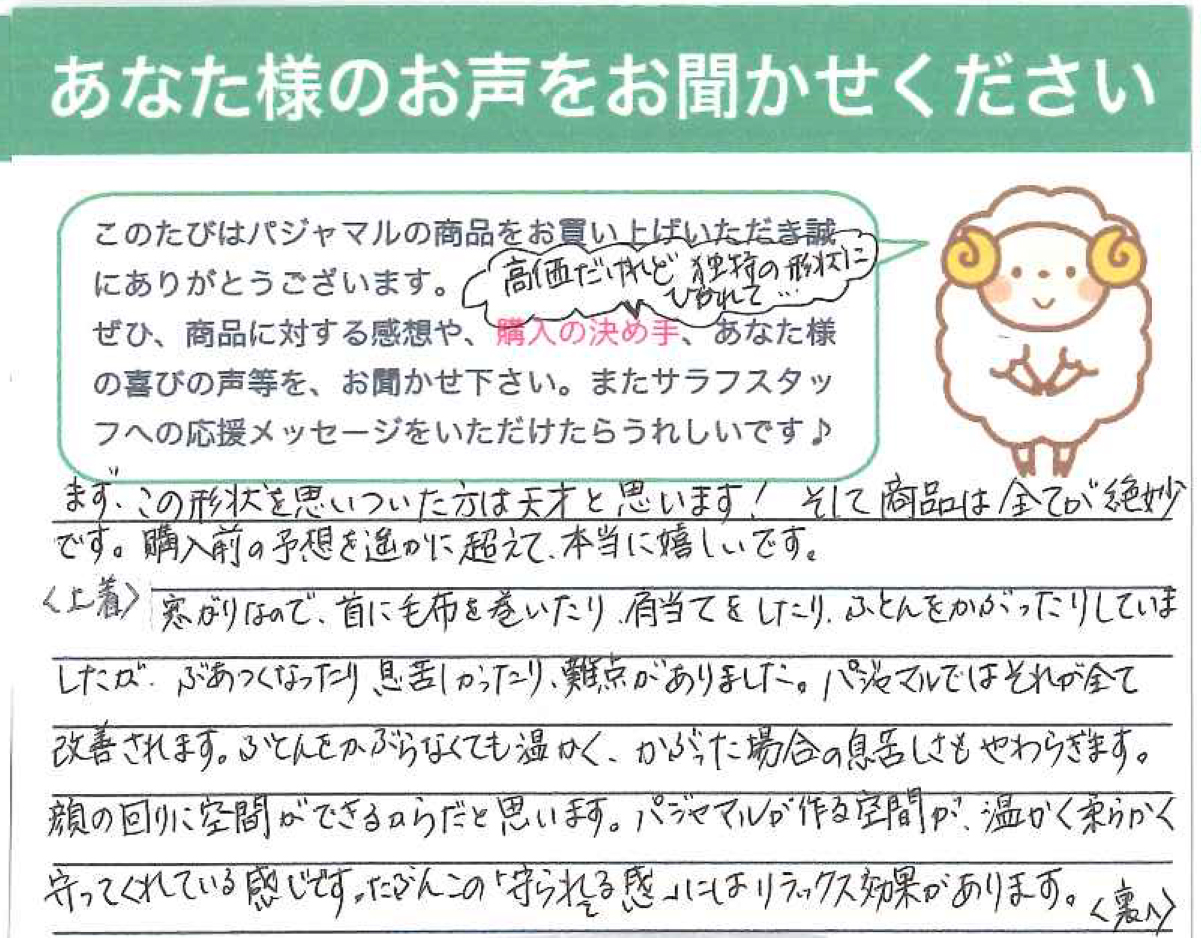 あなた様のお声をお聞かせください
このたびはパジャマルの商品をお買い上げいただき誠
にありがとうございます。
高価だけれど独特の形状に
ひかれて…
ぜひ、商品に対する感想や、購入の決め手、あなた様
の喜びの声等を、お聞かせ下さい。またサラフスタッ
フへの応援メッセージをいただけたらうれしいです♪
まず、この形状を思いついた方は天才と思います! そして商品は全てが絶妙
です。購入前の予想を遥かに超えて、本当に嬉しいです。
〈上着〉 寒がりなので、首に毛布を巻いたり、肩当てをしたり、ふとんをかぶったりしていま
したが、ぶあつくなったり、息苦しかったり、難点がありました。パジャマルではそれが全て
改善されます。ふとんをかぶらなくても温かく、かぶった場合の息苦しさもやわらぎます。
顔の回りに空間ができるからだと思います。パジャマルが作る空間が、温かく柔らかく
守ってくれている感じです。たぶんこの「守られてる感」にはリラックス効果があります。〈裏へ〉